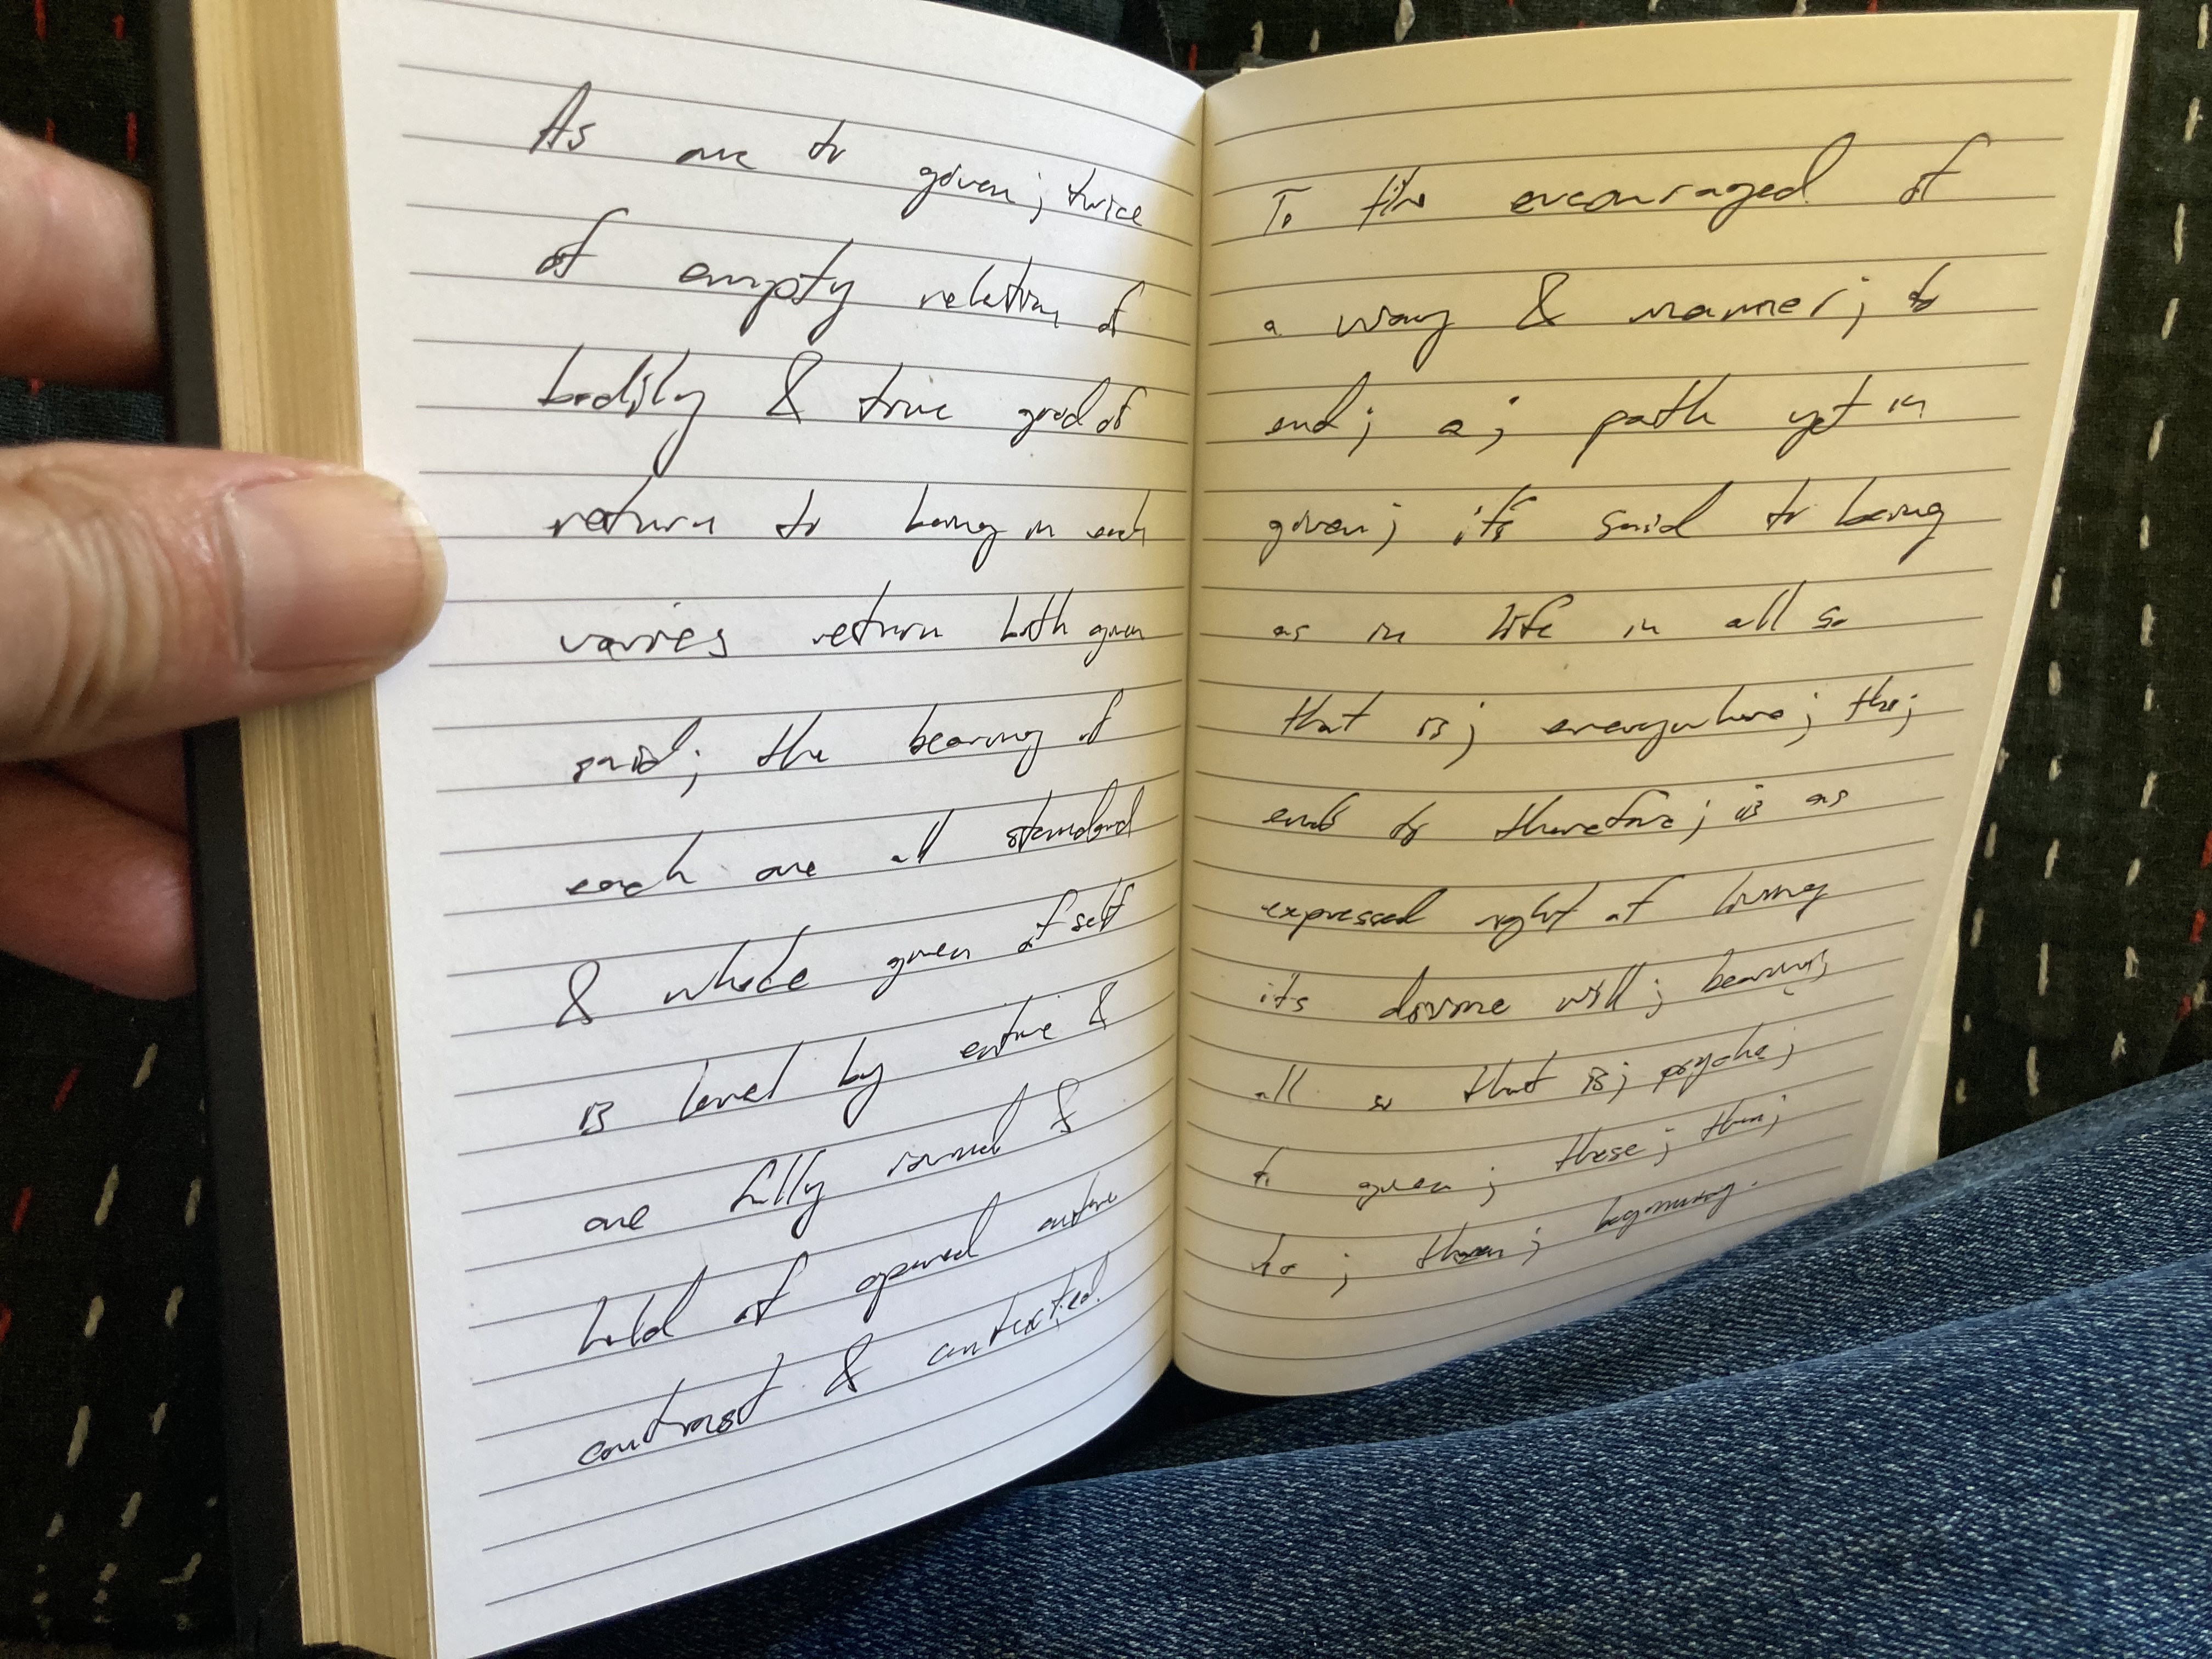 As are to given; twice
of empty relation of
bodily & true good of
return to being in each
varies return both given
said; the bearing of
each are all standard
& whole given of self
is level by entire &
are fully &
held of opened entire
contrast & contexted.
To the encouraged of
a way & manner; to
end; a; path yet in
given; its said to being
as in life in all so
that is; everywhere; the;
ends to therefore; is as
expressed right of living
its divine will; bearing;
all so that is; psyche;
to given; these; then;
to; then; beginning.